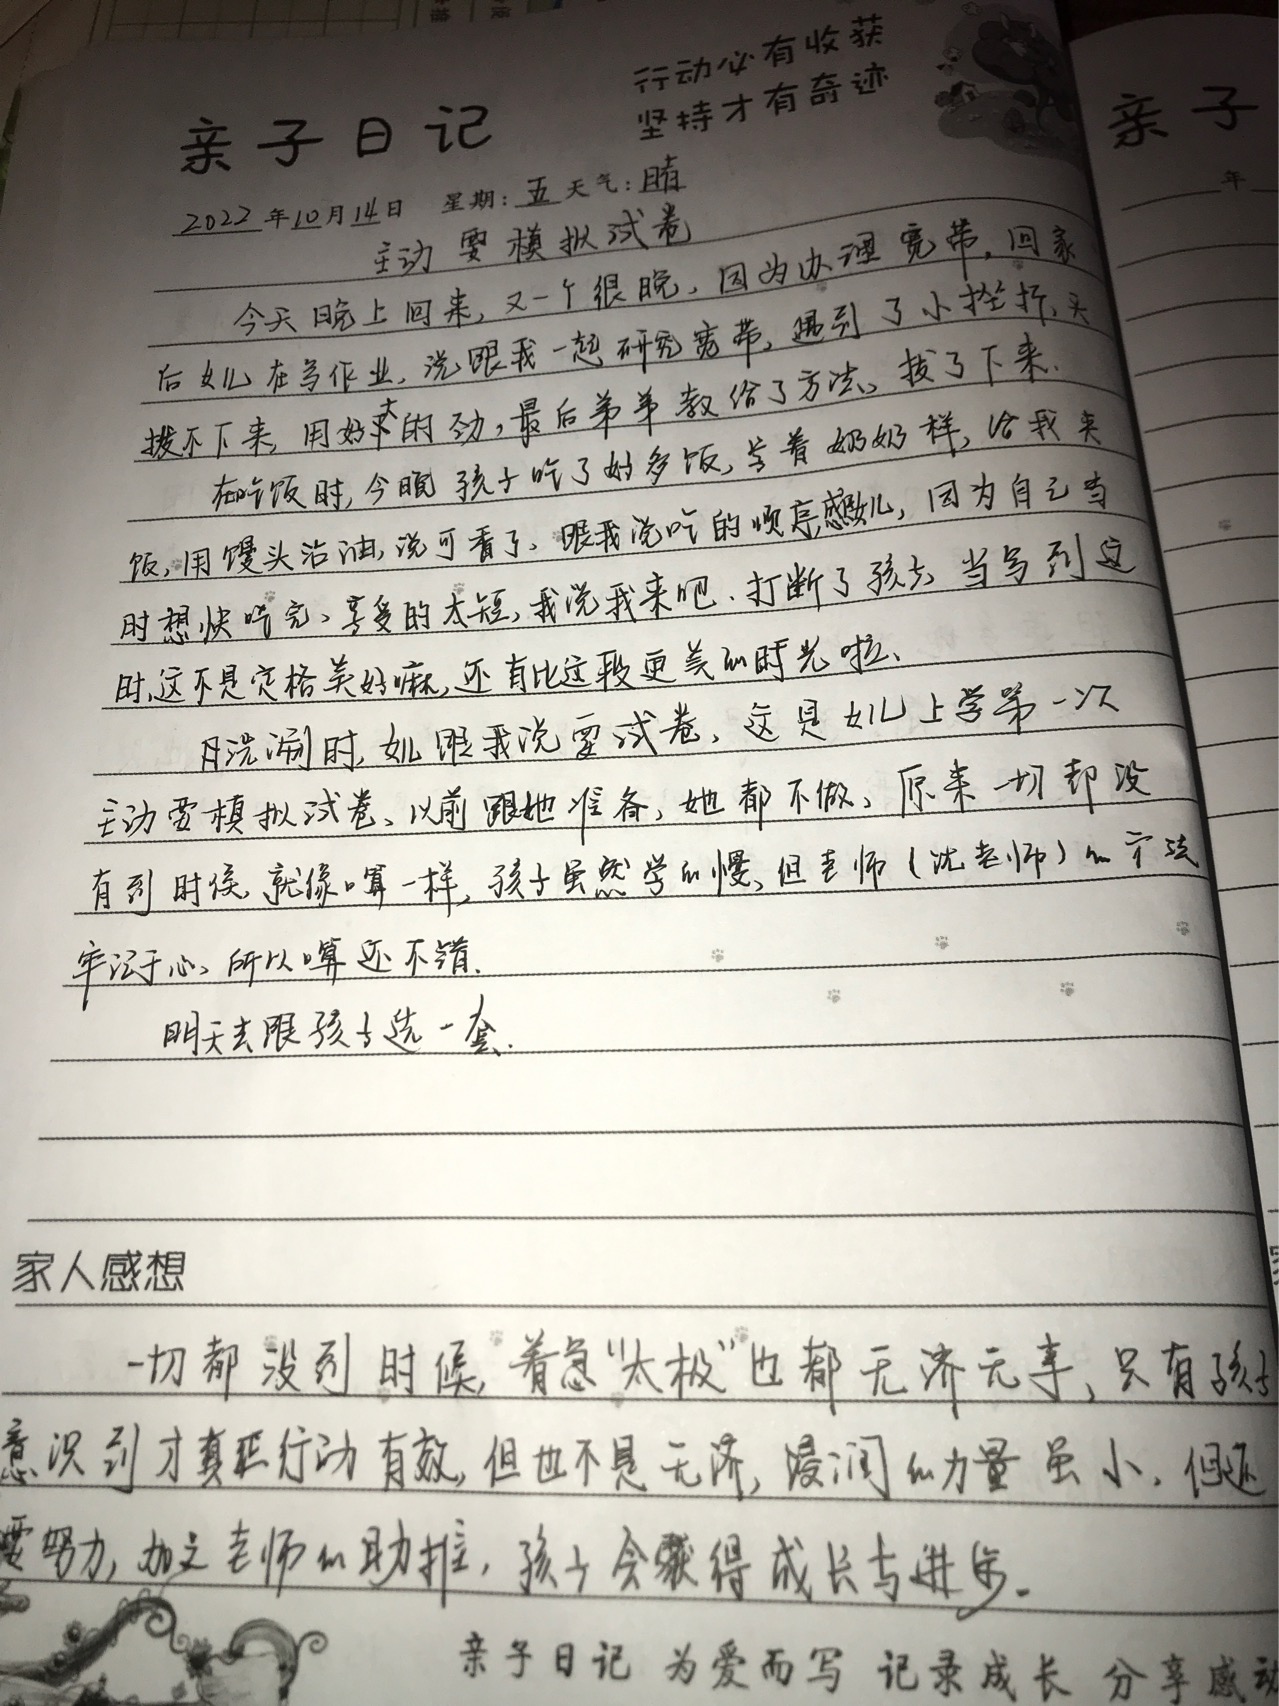 行动必有收获
坚持才有奇迹
亲子日记
亲子
2022年10月14日 星期:五 天气:晴
年
主动要模拟试卷
今天晚上回来,又一个很晚,因为办理宽带,回家
后女儿在写作业,说跟我一起研究宽带,遇到了小挫折,
拨不下来,用好大的劲,最后弟弟教给了方法,拔了下来.
在吃饭时,今晚孩子吃了好多饭,学着奶奶样,给我夹
饭,用馒头沾油,说可看了、跟我说吃的顺序,感女儿,因为自己当
时想快吃完、享受的太短,我说我来吧.打断了孩子,当写到这
时,这不是定格美好嘛,还有比这段更美的时光啦、
洗涮时,女儿跟我说要试卷、这是女儿上学第一次
主动要模拟试卷、以前跟她准备,她都不做、原来一切却没
有到时候,就像口算一样,孩子虽然学的慢,但老师(沈老师)的方法
牢记于心、所以口算还不错.
明天去跟孩子选一套.
家人感想
一切都没到时候,着急“太极”也都无济无事,只有孩子
意识到才真正行动有效,但也不是无济,浸润的力量虽小,但还
要努力,加之老师的助推,孩子会获得成长与进步.
亲子日记 为爱而写 记录成长 分享感动